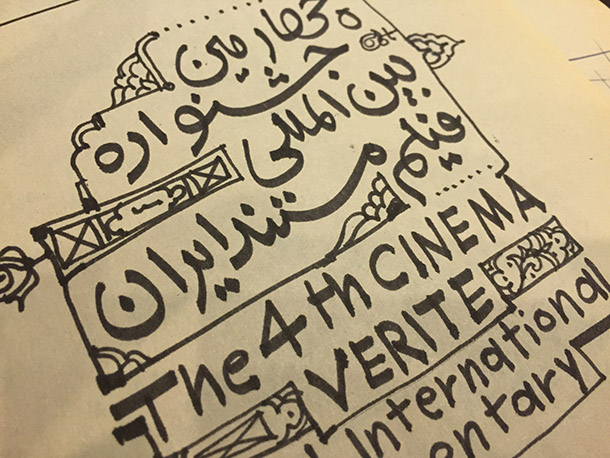 چهارمین
جشنواره
بین المللی
فیلم مستند ایران
The 4th CINEMA
VERITE
International
entary